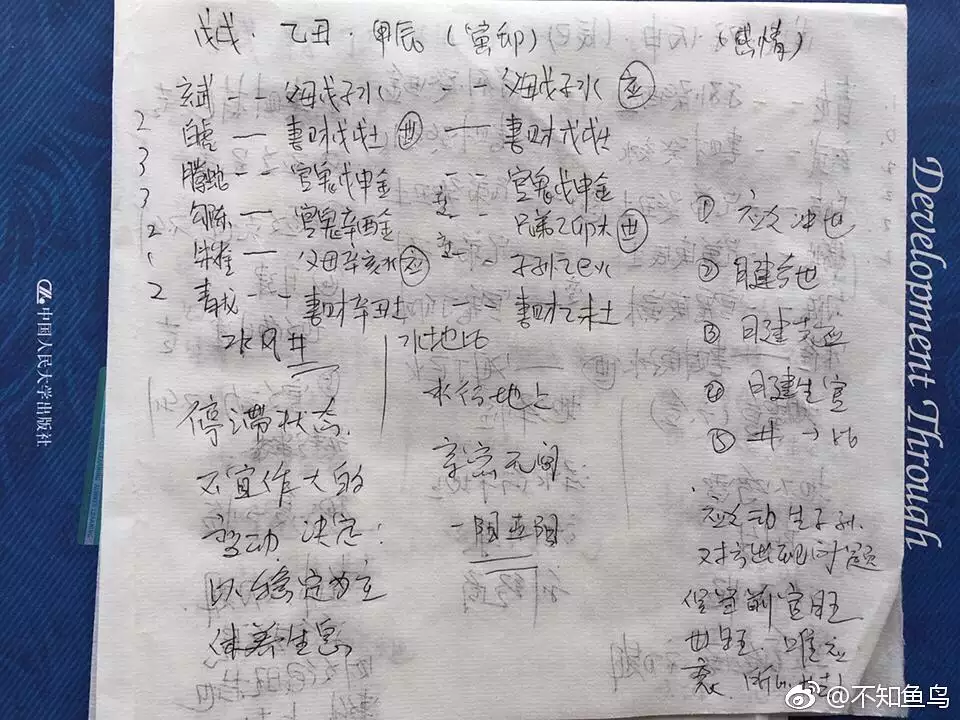 戊戌·乙丑·甲辰(寅卯) (感情)
玄武 - - 父母戊子水 - - 父母戊子水 应
2 白虎 — 妻财戊戌土 世 — 妻财戊戌土
3 腾蛇 - - 官鬼戊申金 - - 官鬼戊申金
3 勾陈 — 官鬼辛酉金 变 - - 兄弟乙卯木 世
2 朱雀 — 父母辛亥水 应 变 - - 子孙乙巳火
1
2 青龙 - - 妻财辛丑土 - - 妻财乙未土
水风井
水地比
停滞状态
不宜作大的
变动 决定:
以稳定为主
休养生息
水行地上
亲密无间
一阳五阴
① 应爻冲世
② 日建合世
③ 月建克应
④ 月建生官
⑤ 井→比
应爻动 生子孙
对方出现问题
但当前官旺
世旺 唯应
衰
中国人民大学出版社
Development Through
@不知鱼鸟